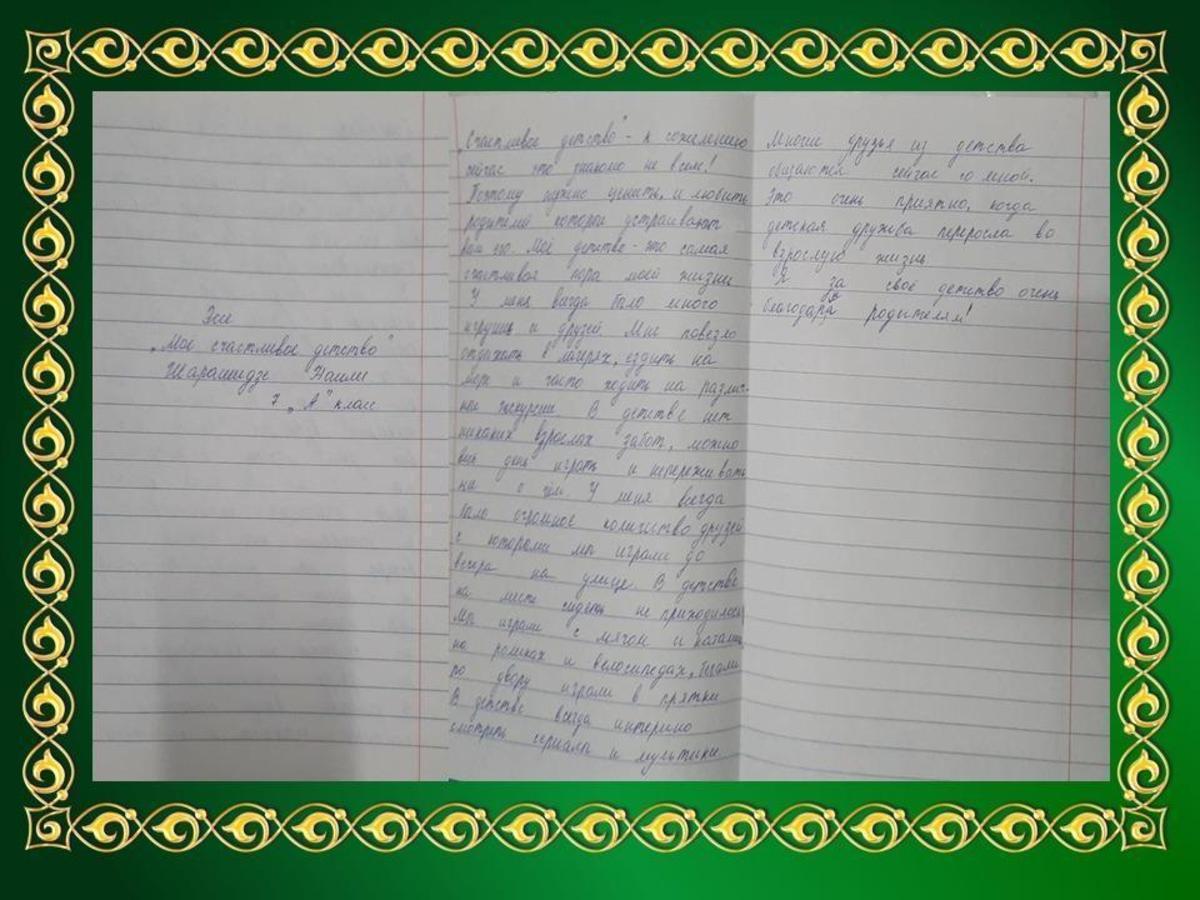 Эссе
„Мое счастливое детство"
Нашли
7 „А" класс
„Счастливое детство" - к сожелению
сейчас это знакомо не всем!
Поэтому нужно ценить, и любить
родителей которые устраивают
вам его. Моё детство - это самая
счастливая пора моей жизни
У меня всегда было много
игрушек и друзей Мне повезло
отдыхать в лагерях, ездить на
море и часто ходить на различ-
ные экскурсии. В детстве нет
никаких взрослых забот, можно
весь день играть и непереживать
ни о чём. У меня всегда
было огромное количество друзей
с которыми мы играли до
вечера на улице. В детстве
на месте сидеть не приходилось
мы играли с мячом и катались
на роликах и велосипедах, бегали
по двору играли в прятки
В детстве всегда интересно
смотреть сериалы и мультики
Многие друзья из детства
общаются сейчас со мной.
Это очень приятно, когда
детская дружба переросла во
взрослую жизнь
Я за своё детство очень
благодарна родителям!